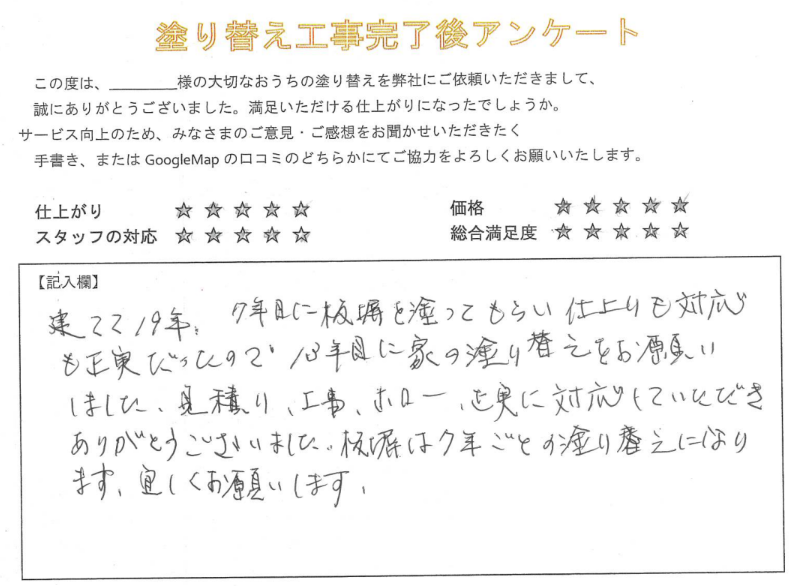 塗り替え工事完了後アンケート
この度は、________様の大切なおうちの塗り替えを弊社にご依頼いただきまして、
誠にありがとうございました。満足いただける仕上がりになったでしょうか。
サービス向上のため、みなさまのご意見・ご感想をお聞かせいただきたく
手書き、または GoogleMap の口コミのどちらかにてご協力をよろしくお願いいたします。
仕上がり ☆ ☆ ☆ ☆ ☆ 価格 ☆ ☆ ☆ ☆ ☆
スタッフの対応 ☆ ☆ ☆ ☆ ☆ 総合満足度 ☆ ☆ ☆ ☆ ☆
【記入欄】
建てて19年、7年目に板塀を塗ってもらい仕上りも対応
も正実だったので、13年目に家の塗り替えをお願い
しました。見積り、工事、ホロー、正実に対応していただき
ありがとうございました。板塀は7年ごとの塗り替えになり
ます。宜しくお願いします。